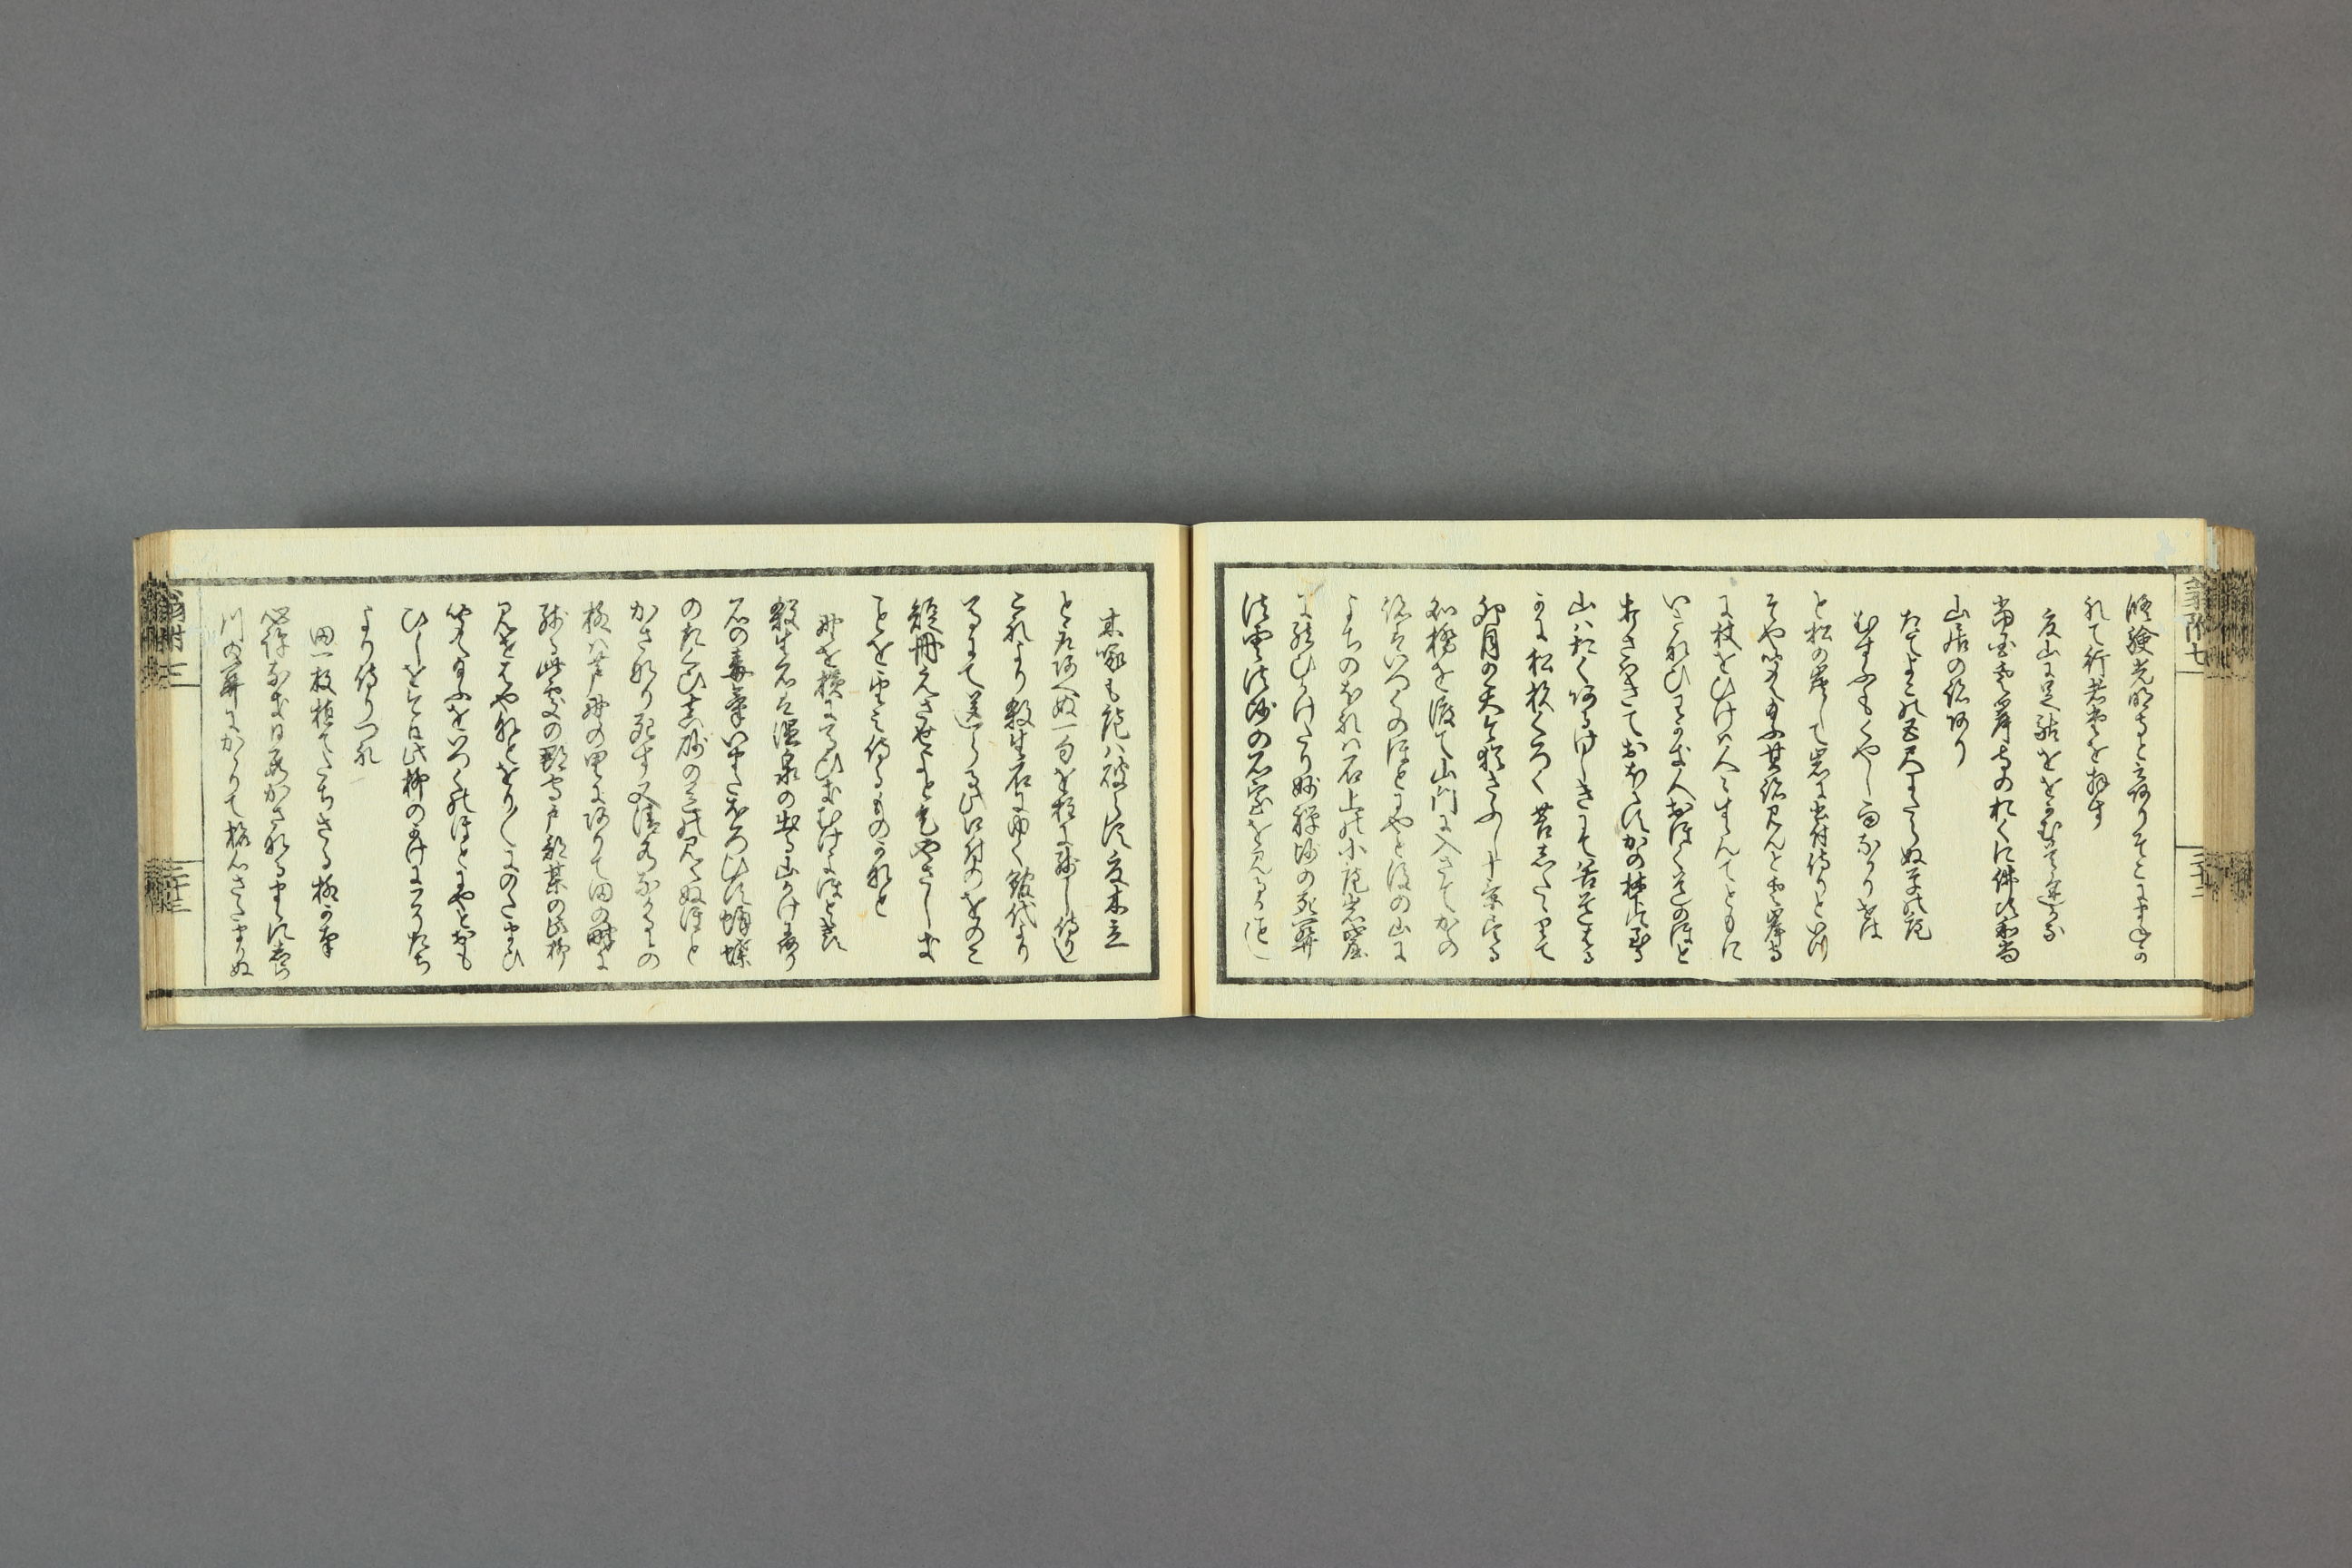 修験光明寺と云有りそこにまねか
れて行者堂を拝す
夏山に足駄をおかむ首途かな
当国雲岸寺のおくに佛頂和尚
山居の跡あり
たてよこの五尺にたらぬ草の庵
むすふもくやし雨なかりせは
と松の炭して岩に書付侍りといつ
そや聞え給ふ其跡見んと雲岸寺
に杖をひけは人々すゝんてともに
いさなひわかき人おほく道のほと
打さはきておほえすかの梺に到る
山はおくあるけしきにて谷道はる
かに松杉くろく苔したゝりて
卯月の天今猶さむし十景尽る
所橋を渡て山門に入さてかの
跡はいつくのほとにやと後の山に
よちのほれは石上の小庵岩窟
にむすひかけたり妙禅師の死関
法雲法師の石室を見るか如し
木啄も庵は破らす夏木立
とたりあへぬ一句を柱に残し侍し
これより殺生石に行く館代より
馬にて送らる此口付のをのこ
短冊えさせよと乞やさしき
ことを望み侍るものかなと
野を横に馬ひきむけよほとゝきす
殺生石は温泉の出る山かけにあり
石の毒気いまたほろひす蜂蝶
のたくひ真砂の色の見えぬほと
かさなり死す又清水なかるゝの
柳は芦野の里にありて田の畔に
残る此所の郡守戸部某の此柳
見せはやなとをり〳〵にのたまひ
聞え給ふをいつくのほとにやとおも
ひしをけふ此柳のかけにこそ立
より侍りつれ
田一枚植てたちさる柳かな
心許なき日数かさなるまゝに白
川の関にかゝりて旅心さたまりぬ